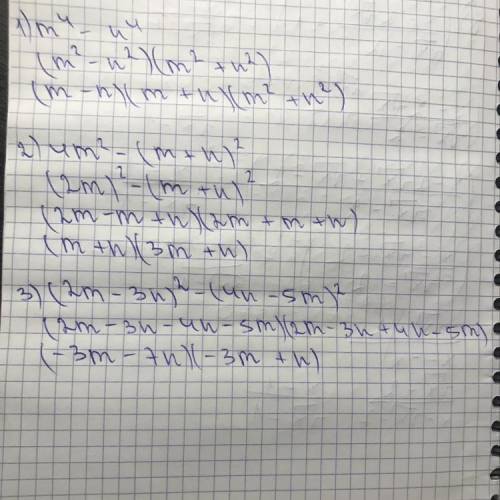 1) m⁴ - n⁴
(m² - n²)(m² + n²)
(m - n)(m + n)(m² + n²)
2) 4m² - (m + n)²
(2m)² - (m + n)²
(2m - m + n)(2m + m + n)
(m + n)(3m + n)
3) (2m - 3n)² - (4n - 5m)²
(2m - 3n - 4n - 5m)(2m - 3n + 4n - 5m)
(-3m - 7n)(-3m + n)